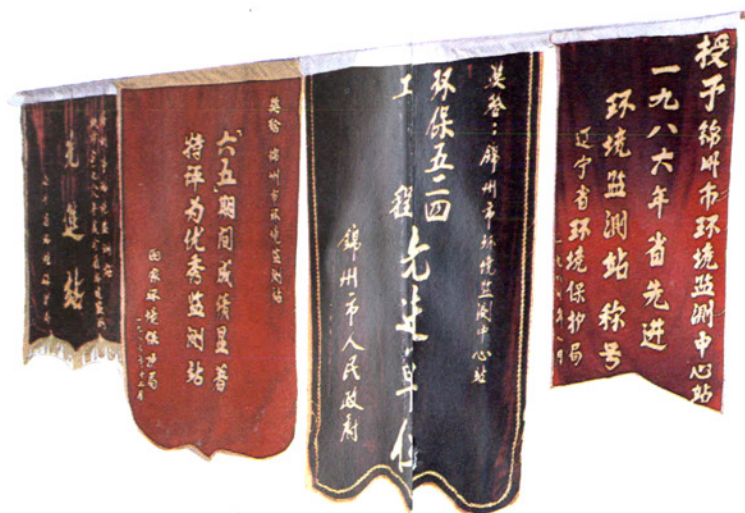 授予锦州市环境监测中心站
一九八六年省先进
环境监测站称号
辽宁省环境保护局
奖给：锦州市环境监测中心站
环保五二四
工程先进单位
锦州市人民政府
奖给 锦州市环境监测站
“六五”期间成绩显著
特评为优秀监测站
国家环境保护局
先进站